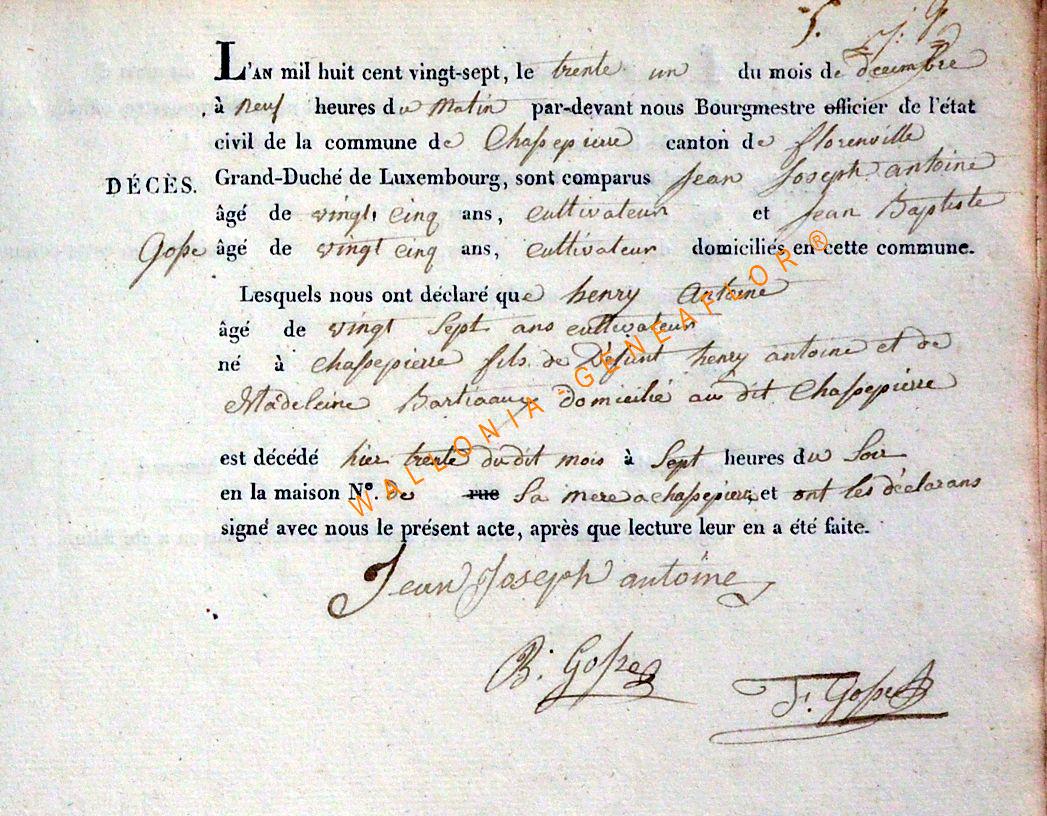 5.
L'AN mil huit cent vingt-sept, le trente un du mois de décembre
à neuf heures du Matin par-devant nous Bourgmestre officier de l'état
civil de la commune de Chassepierre canton de florenville
DÉCÈS. Grand-Duché de Luxembourg, sont comparus Jean Joseph antoine
âgé de vingt cinq ans, cultivateur et Jean Baptiste
Gosse âgé de vingt cinq ans, cultivateur domiciliés en cette commune.
Lesquels nous ont déclaré que henry Antoine
âgé de vingt Sept ans cultivateur
né à chassepierre fils de Défunt henry antoine et de
Madeleine domicilié au dit Chassepierre
est décédé hier trente du dit mois à Sept heures du Soir
en la maison N°. de rue Sa mere a chassepierre, et ont les déclarans
signé avec nous le présent acte, après que lecture leur en a été faite.
Jean Joseph antoine
B. Gosse
F. Gosse
WALLONIA-GENEAFLOR®